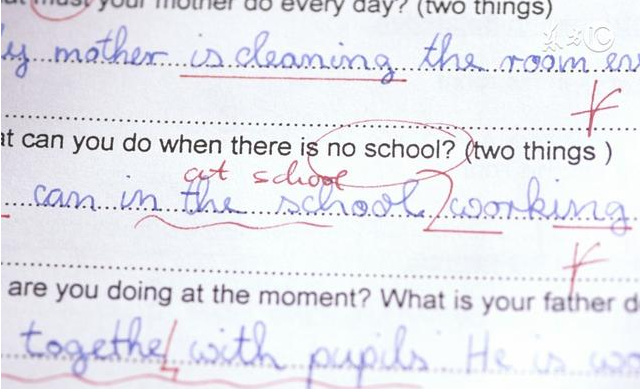 your mother do every day? (two things)
mother is cleaning the room
can you do when there is no school? (two things )
at school
can in the school working
are you doing at the moment? What is your father
togethe with pupils. He is